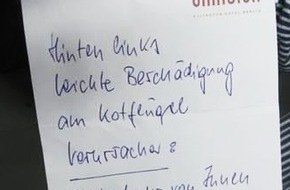 Hinten links
leichte Beschädigung
am Kotflügel
Verursacher?
von Ihnen